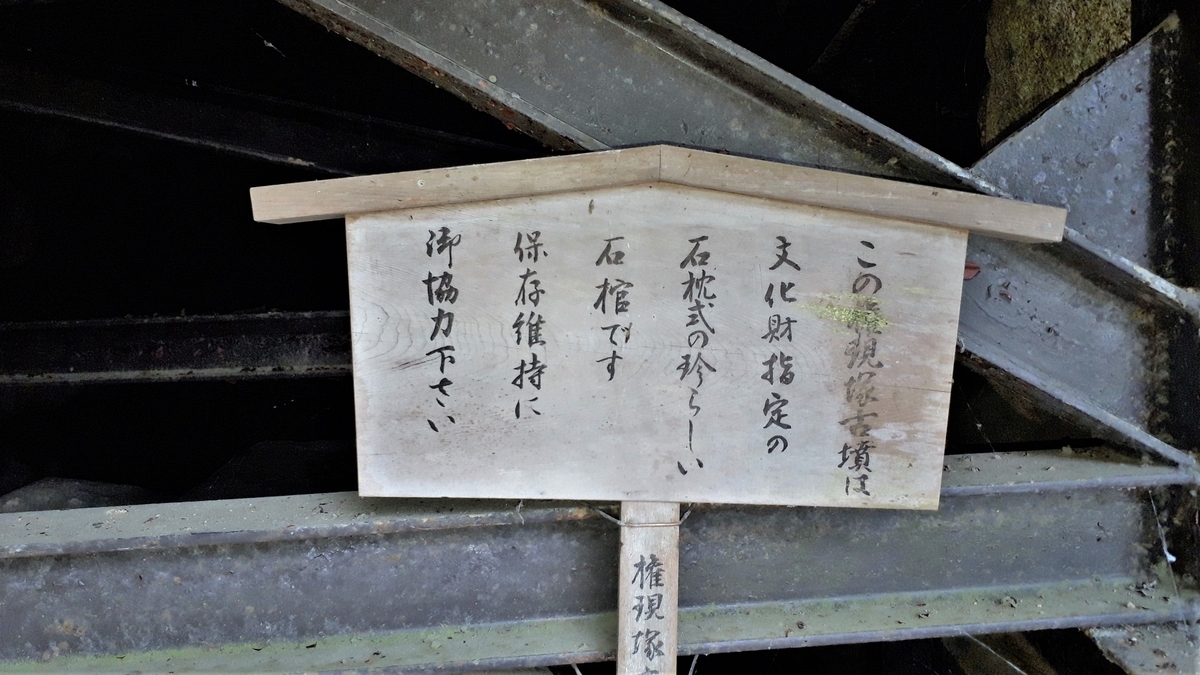 この権現塚古墳は
文化財指定の
石枕式の珍らしい
石棺です
保存維持に
御協力下さい
権現塚